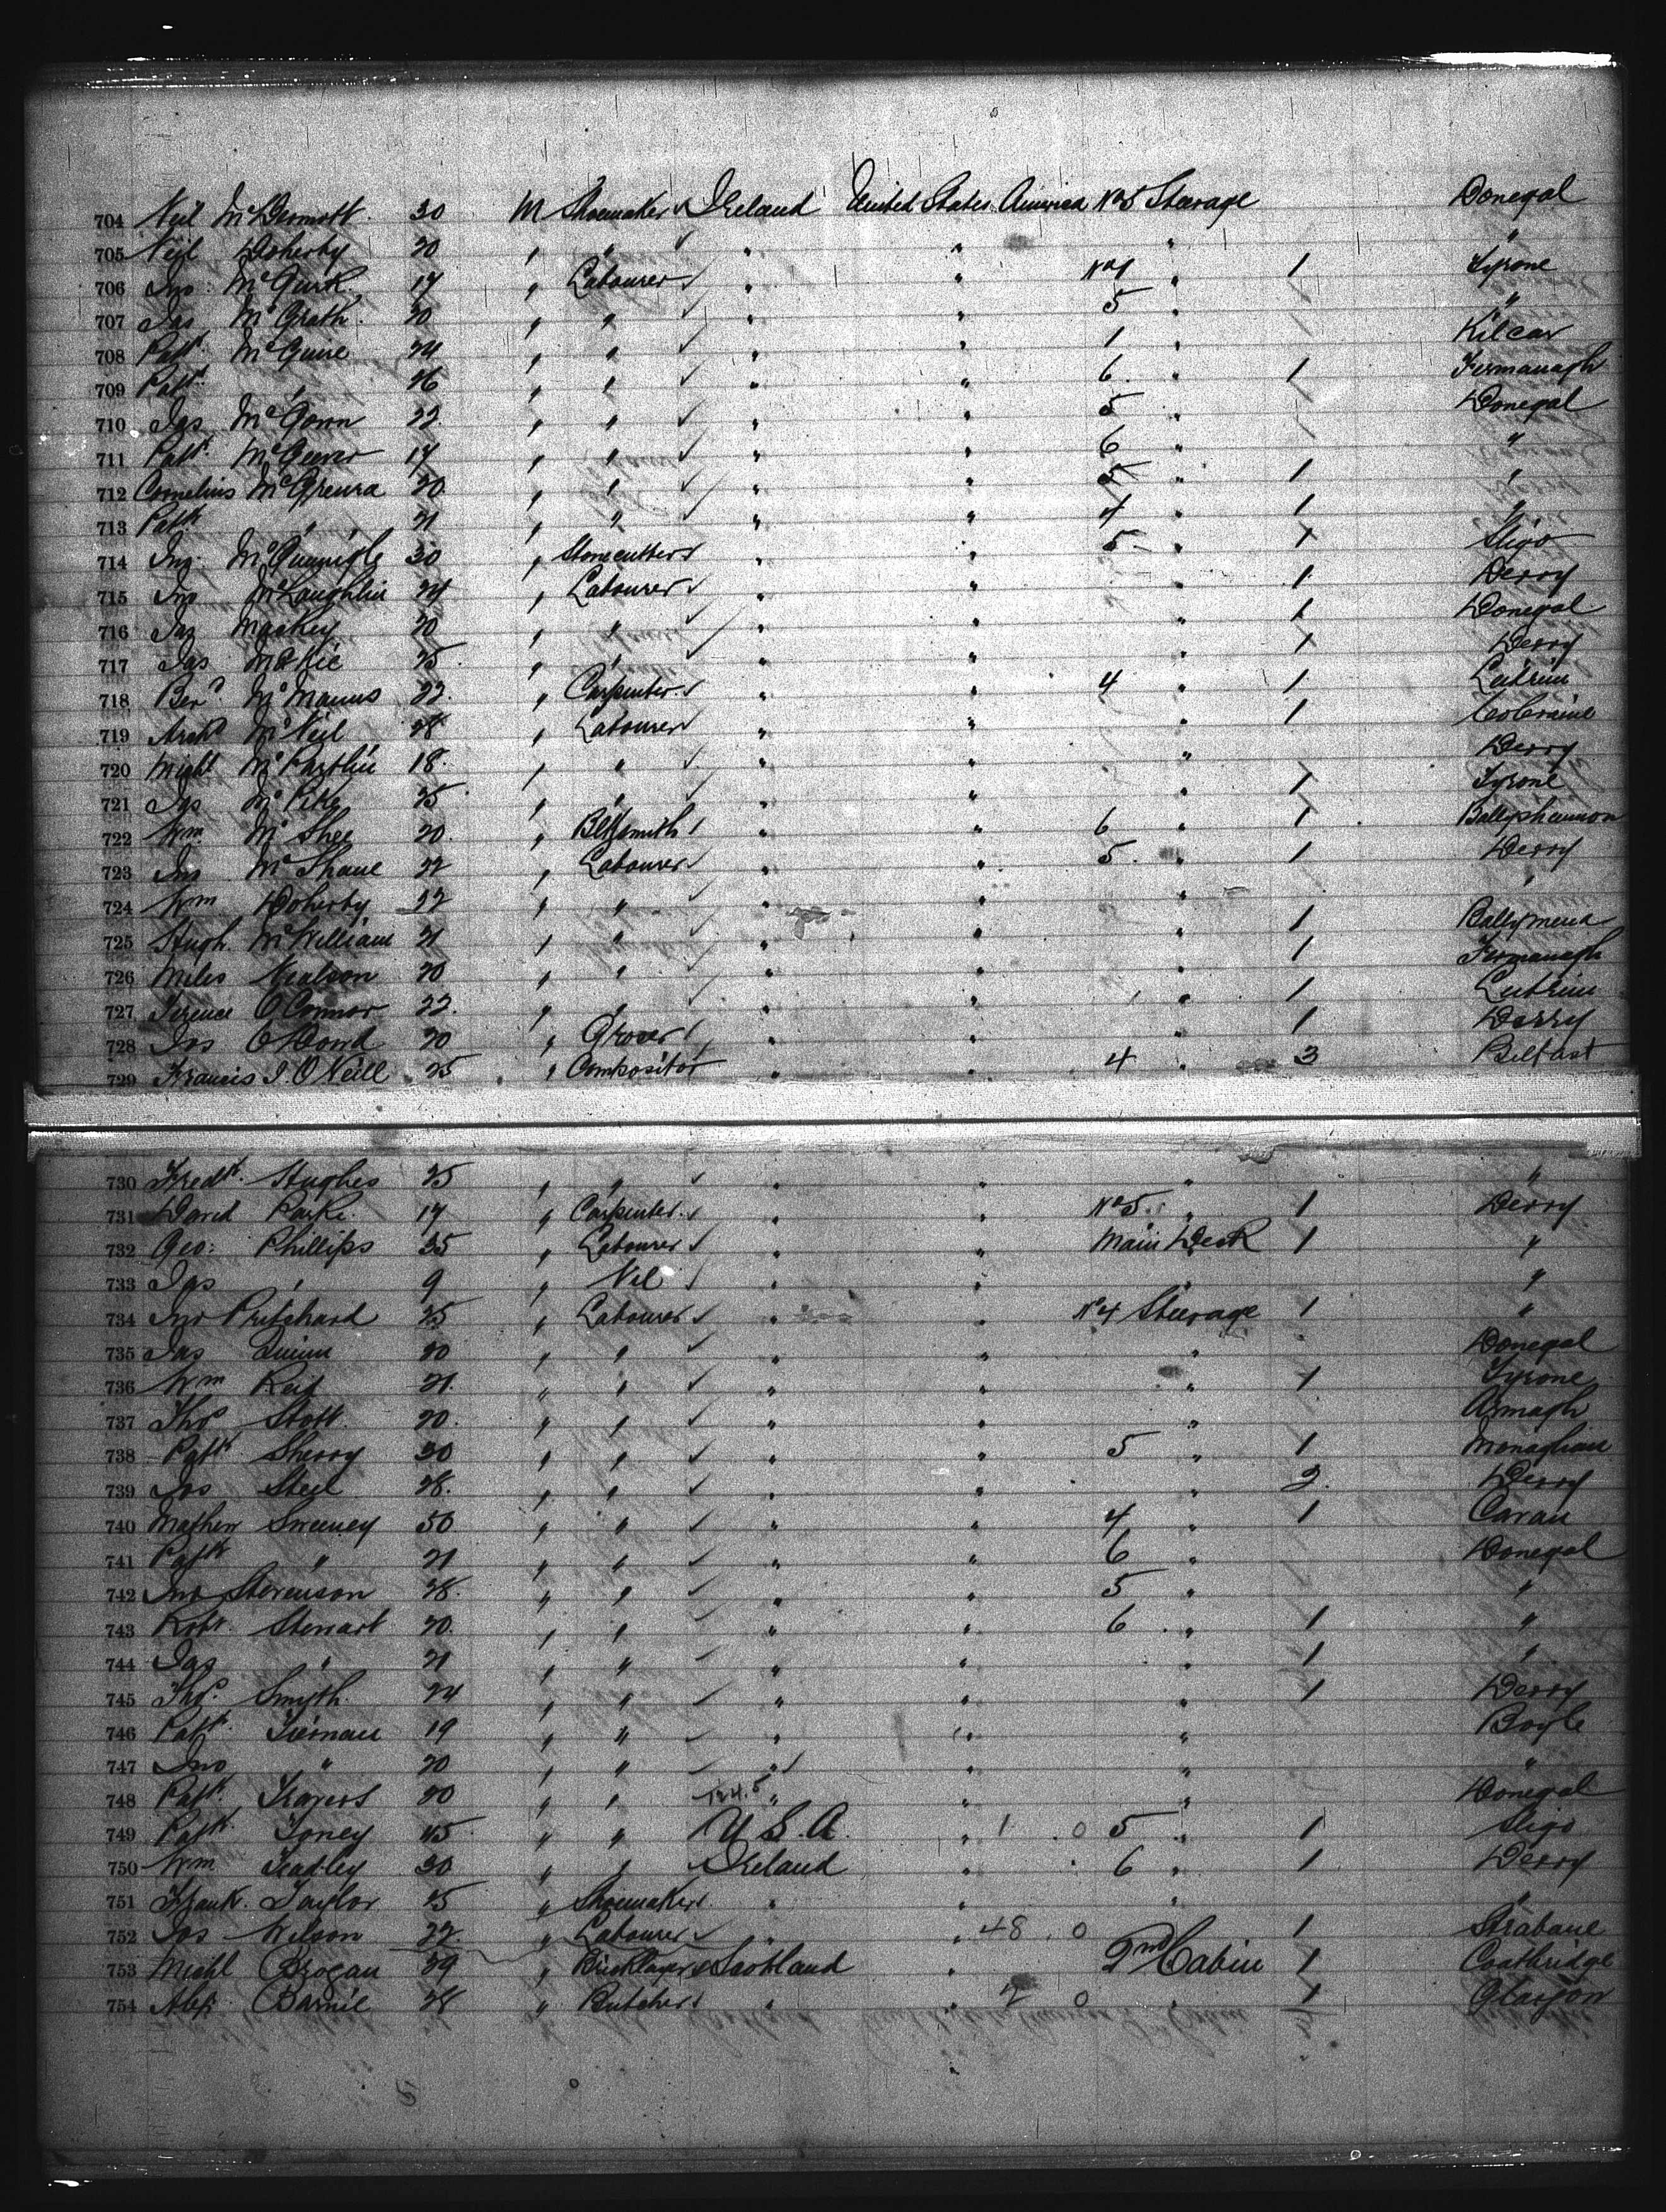 704 Neil McDermott 30 M Shoemaker Ireland United States America No 5 Steerage Donegal
705 Neil Doherty 20 " " " " " "
706 Jno McGurk 17 " Labourer " " No 1 " 1 Tyrone
707 Jas McGrath 20 " " " " 5 " "
708 Patk McGuire 24 " " " " 1 " Kilcar
709 Patk " 26 " " " " 6 " 1 Fermanagh
710 Jas McGown 22 " " " " 5 " Donegal
711 Patk McGeever 17 " " " " 6 " "
712 Cornelius 20 " " " " 5 " 1 "
713 Patk " 21 " " " " 4 " 1 "
714 30 " Stonecutter " " 5 " 1 Sligo
715 Jno McLaughlin 24 " Labourer " " " 1 Derry
716 Jas Mackey 20 " " " " " 1 Donegal
717 Jas McKie 25 " " " " " 1 Derry
718 Bernd McManus 22 " Carpenter " " 4 " 1 Leitrim
719 Archd McNeil 28 " Labourer " " " 1 Coleraine
720 Michl McPartlin 18 " " " " " Derry
721 Jas McPike 25 " " " " " 1 Tyrone
722 Wm McShee 20 " Blksmith " " 6 " 1 Ballyshannon
723 Jno McShane 22 " Labourer " " 5 " 1 Derry
724 Wm Doherty 22 " " " " " "
725 Hugh McWilliam 21 " " " " " 1 Ballymena
726 Miles Nealson 20 " " " " " 1 Fermanagh
727 Terence O'Connor 22 " " " " " 1 Leitrim
728 Jas 20 " Grocer " " " 1 Derry
729 Francis J. O'Neill 25 " Compositor " " 4 " 3 Belfast
730 Fredk Hughes 25 " " " " " "
731 David Parke 17 " Carpenter " " No 5 " 1 Derry
732 Geo: Phillips 35 " Labourer " " Main Deck 1 "
733 Jas " 9 " Nil " " " "
734 Jno Pritchard 25 " Labourer " " No 4 Steerage 1 "
735 Jas Quinn 20 " " " " " Donegal
736 Wm Reid 21 " " " " " 1 Tyrone
737 Thos Stott 20 " " " " " Armagh
738 Patk Sherry 30 " " " " 5 " 1 Monaghan
739 Jos Steel 28 " " " " " 2 Derry
740 Mathew Sweeney 50 " " " " 4 " 1 Cavan
741 Patk " 21 " " " " 6 " Donegal
742 Jno Stevenson 28 " " " " 5 " "
743 Robt Stewart 20 " " " " 6 " 1 "
744 Jas " 21 " " " " " 1 "
745 Thos Smyth 24 " " " " " 1 Derry
746 Patk Tiernan 19 " " " " " Boyle
747 Jno " 20 " " " " " "
748 Patk Travers 20 " " " " " Donegal
749 Patk Toney 45 " " U.S.A. " 1 0 5 " 1 Sligo
750 Wm 30 " " Ireland " 6 " 1 Derry
751 Frank Taylor 25 " Shoemaker " " " "
752 Jos Wilson 22 " Labourer " " 48 0 1 Strabane
753 Michl Brogan 29 " Bricklayer Scotland " 2nd Cabin 1 Coatbridge
754 Alex Barnie 28 " Butcher " " 2 0 " 1 Glasgow